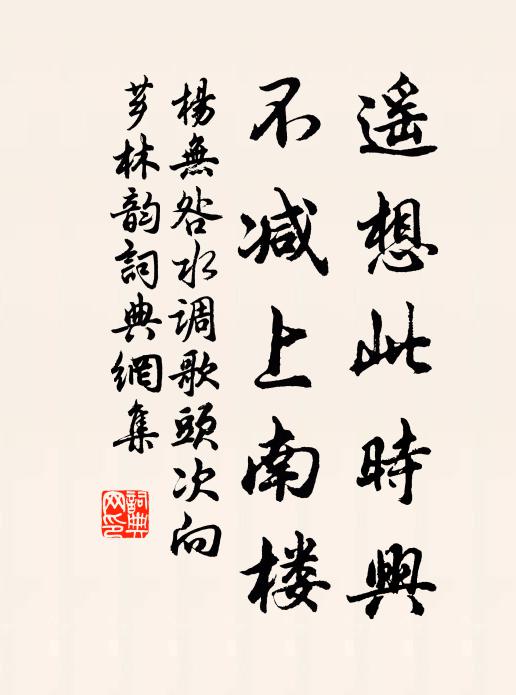 遥想此時興
不减上南楼
楊無咎水调歌頭次向
芗林韵詞典網集
詞典
网印